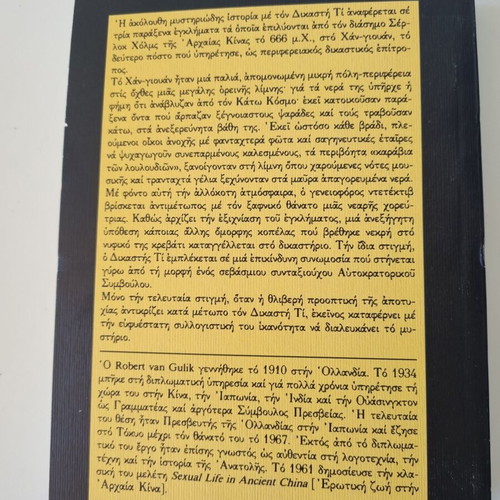 Ἡ ἀκόλουθη μυστηριώδης ἱστορία μέ τόν Δικαστή Τί ἀναφέρεται σέ
τρία παράξενα ἐγκλήματα τά ὁποῖα ἐπιλύονται ἀπό τόν διάσημο Σέρ-
λοκ Χόλμς τῆς Ἀρχαίας Κίνας τό 666 μ.Χ., στό Χάν-γιουάν, τό
δεύτερο πόστο πού ὑπηρέτησε, ὡς περιφερειακός δικαστικός ἐπίτρο-
πος.
Τό Χάν-γιουάν ἦταν μιά παλιά, ἀπομονωμένη μικρή πόλη-περιφέρεια
στίς ὄχθες μιᾶς μεγάλης ὀρεινῆς λίμνης· γιά τά νερά της ὑπῆρχε ἡ
φήμη ὅτι ἀνάβλυζαν ἀπό τόν Κάτω Κόσμο· ἐκεῖ κατοικοῦσαν παρά-
ξενα ὄντα πού ἅρπαζαν ξέγνοιαστους ψαράδες καί τούς τραβοῦσαν
κάτω, στά ἀνεξερεύνητα βάθη της. Ἐκεῖ ὡστόσο κάθε βράδι, πλε-
ούμενοι οἶκοι ἀνοχῆς μέ φανταχτερά φῶτα καί σαγηνευτικές ἑταῖρες
νά ψυχαγωγοῦν συνεπαρμένους καλεσμένους, τά περιβόητα «καράβια
τῶν λουλουδιῶν», ξανοίγονταν στή λίμνη ὅπου χαρούμενες νότες μου-
σικῆς καί τρανταχτά γέλια ξεχύνονταν στά μαῦρα ἀπαγορευμένα νερά.
Μέ φόντο αὐτή τήν ἀλλόκοτη ἀτμόσφαιρα, ὁ γενειοφόρος ντετέκτιβ
βρίσκεται ἀντιμέτωπος μέ τόν ξαφνικό θάνατο μιᾶς νεαρῆς χορεύ-
τριας. Καθώς ἀρχίζει τήν ἐξιχνίαση τοῦ ἐγκλήματος, μιά ἀνεξήγητη
ὑπόθεση κάποιας ἄλλης ὄμορφης κοπέλας πού βρέθηκε νεκρή στό
νυφικό της κρεβάτι καταγγέλλεται στό δικαστήριο. Τήν ἴδια στιγμή,
ὁ Δικαστής Τί ἐμπλέκεται σέ μιά ἐπικίνδυνη συνωμοσία πού στήνεται
γύρω ἀπό τή μορφή ἑνός σεβάσμιου συνταξιούχου Αὐτοκρατορικοῦ
Συμβούλου.
Μόνο τήν τελευταία στιγμή, ὅταν ἡ θλιβερή προοπτική τῆς ἀποτυ-
χίας ἀντικρίζει κατά μέτωπο τόν Δικαστή Τί, ἐκεῖνος καταφέρνει μέ
τήν εὐφυέστατη συλλογιστική του ἱκανότητα νά διαλευκάνει τό μυ-
στήριο.
Ὁ Robert van Gulik γεννήθηκε τό 1910 στήν Ὁλλανδία. Τό 1934
μπῆκε στή διπλωματική ὑπηρεσία καί γιά πολλά χρόνια ὑπηρέτησε τή
χώρα του στήν Κίνα, τήν Ἰαπωνία, τήν Ἰνδία καί τήν Οὐάσινγκτον
ὡς Γραμματέας καί ἀργότερα Σύμβουλος Πρεσβείας. Ἡ τελευταία
του θέση ἦταν Πρεσβευτής τῆς Ὁλλανδίας στήν Ἰαπωνία καί ἔζησε
στό Τόκυο μέχρι τόν θάνατό του τό 1967. Ἐκτός ἀπό τό διπλωμα-
τικό του ἔργο ἦταν ἐπίσης γνωστός ὡς αὐθεντία στή λογοτεχνία, τήν
τέχνη καί τήν ἱστορία τῆς Ἀνατολῆς. Τό 1961 δημοσίευσε τήν κλα-
σική του μελέτη Sexual Life in Ancient China [Ἐρωτική ζωή στήν
Ἀρχαία Κίνα].